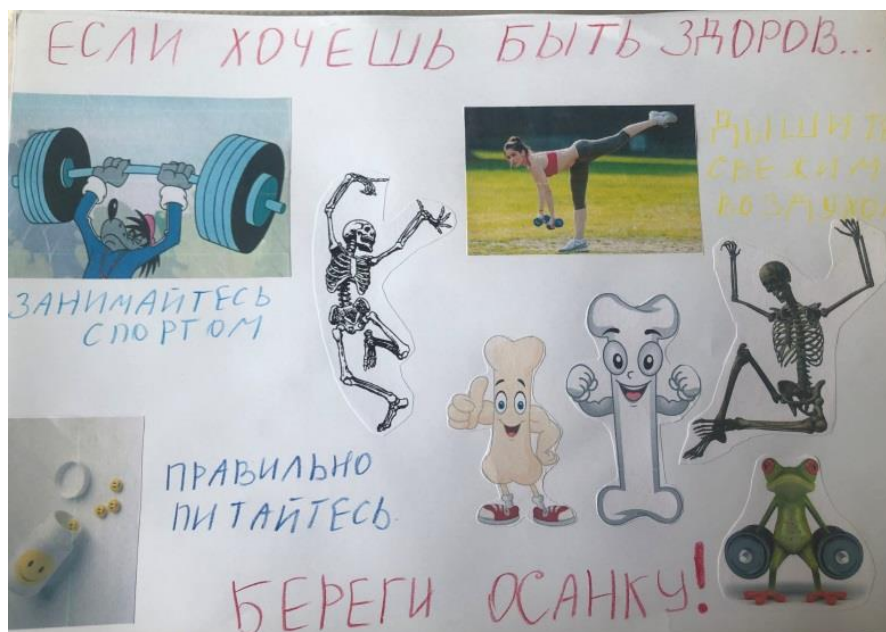 ЕСЛИ ХОЧЕШЬ БЫТЬ ЗДОРОВ...
ДЫШИТЕ
СВЕЖИМ
ВОЗДУХОМ
ЗАНИМАЙТЕСЬ
СПОРТОМ
ПРАВИЛЬНО
ПИТАЙТЕСЬ.
БЕРЕГИ ОСАНКУ!